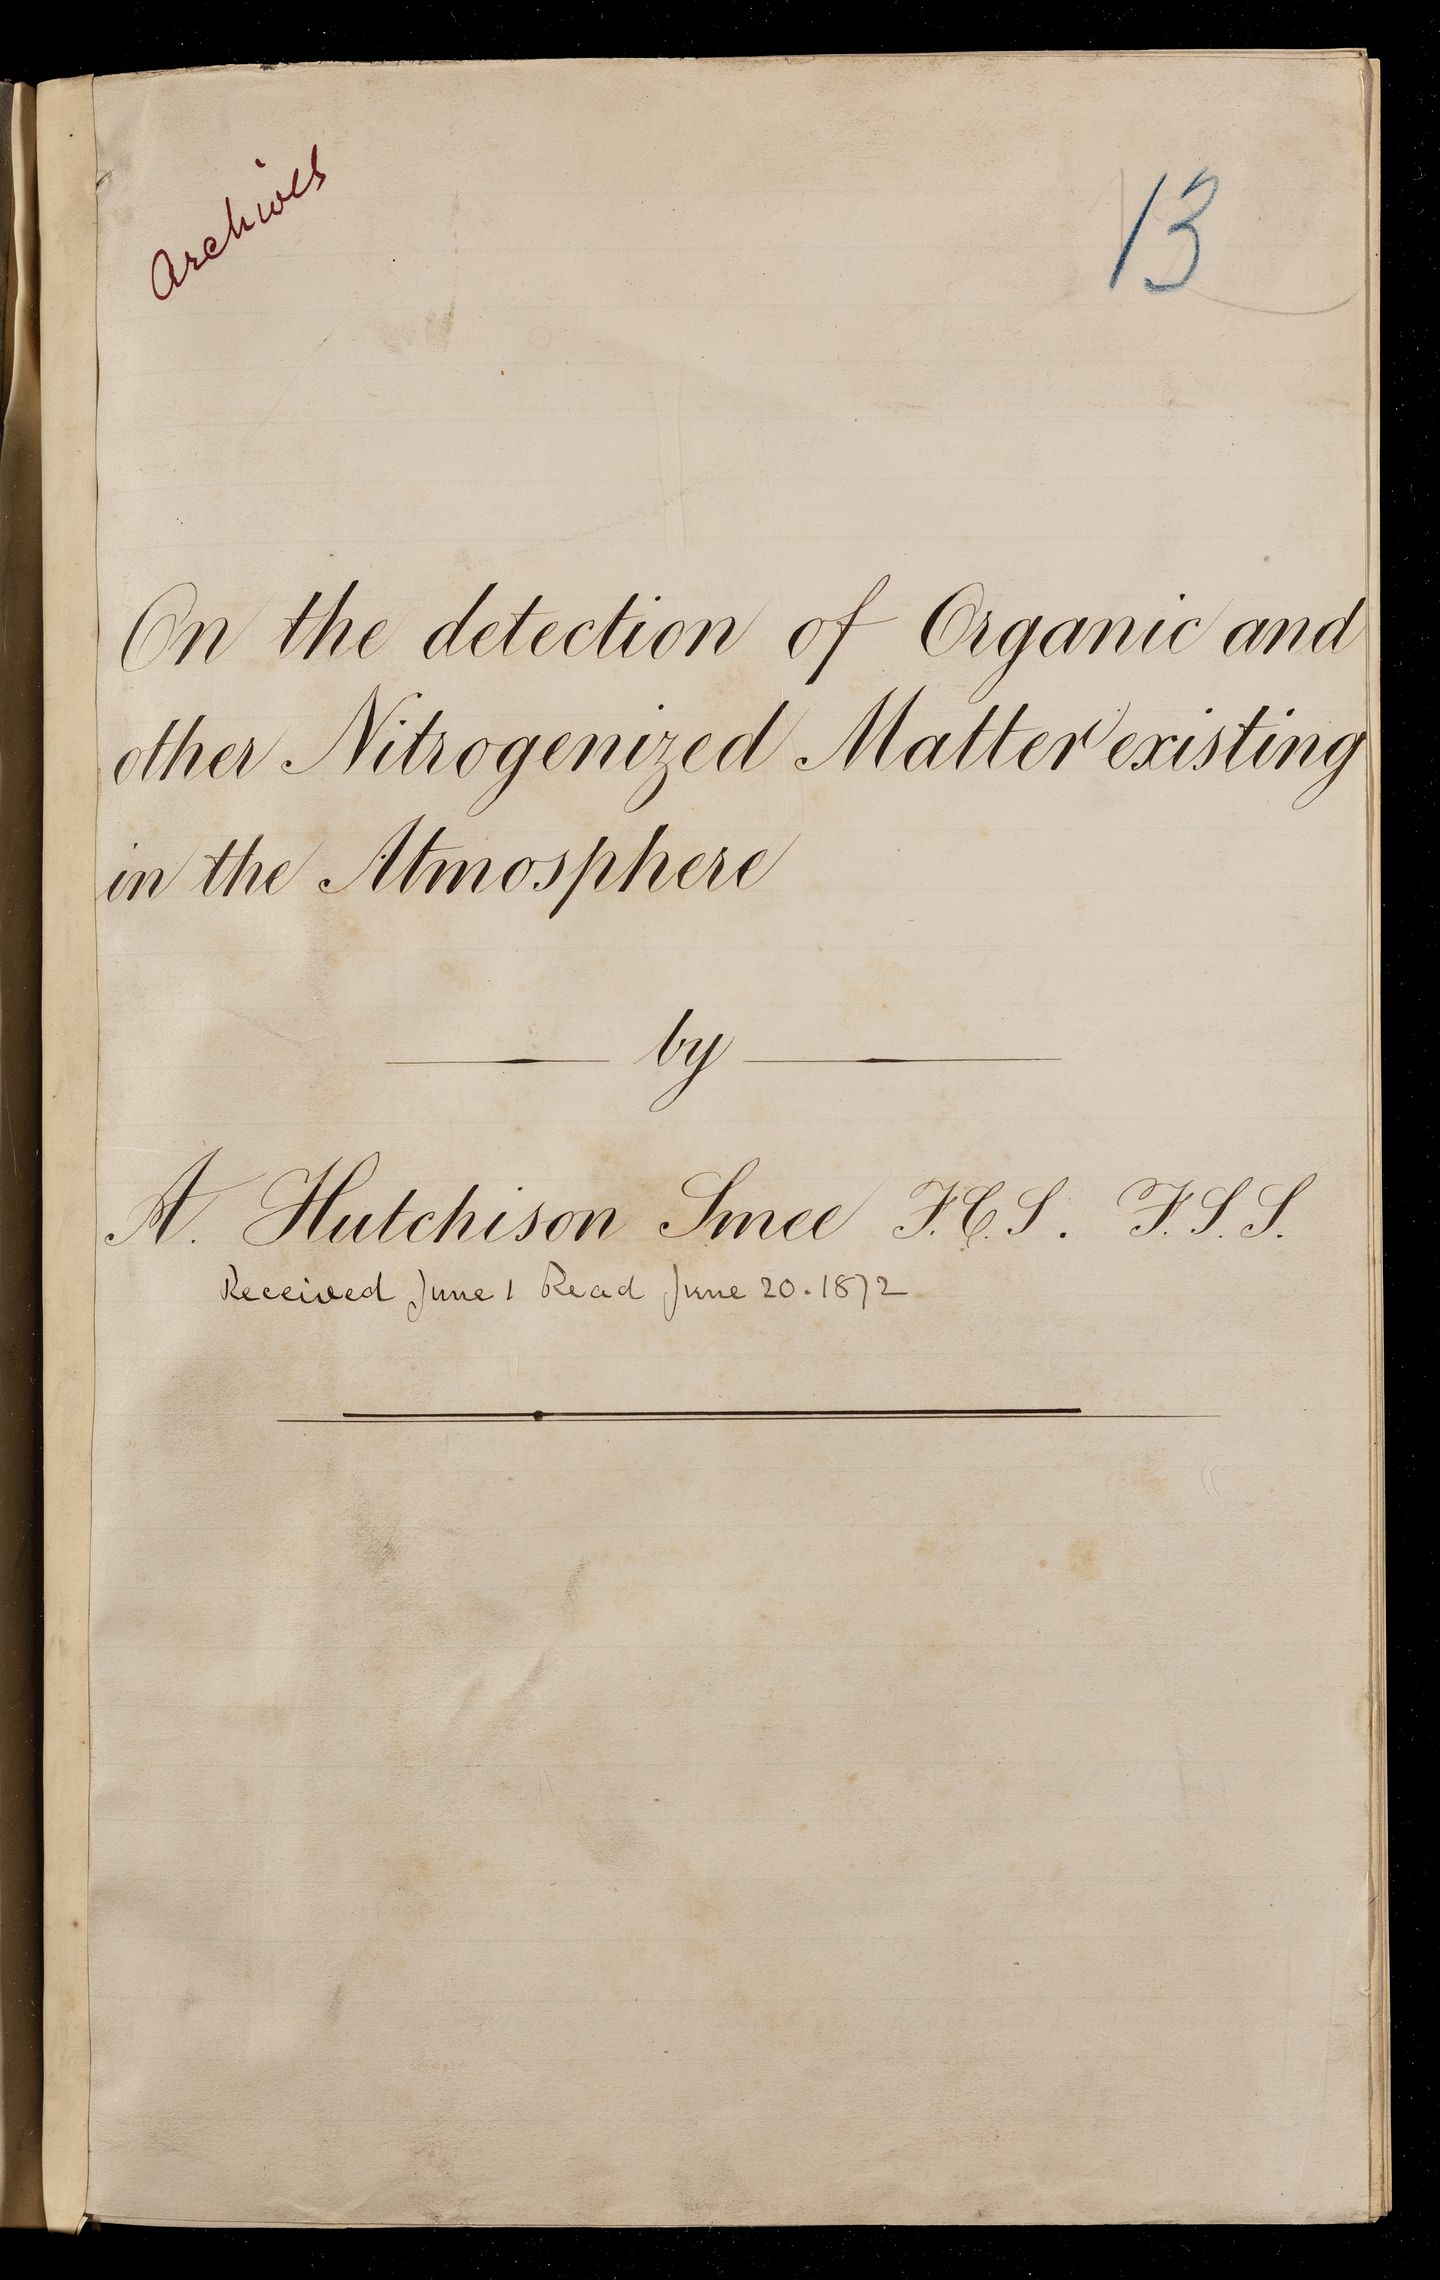 Archives
13
On the detection of Organic and
other Nitrogenized Matter existing
in the Atmosphere
by
A. Hutchison Smee F.C.S. F.S.S.
Received June 1 Read June 20. 1872